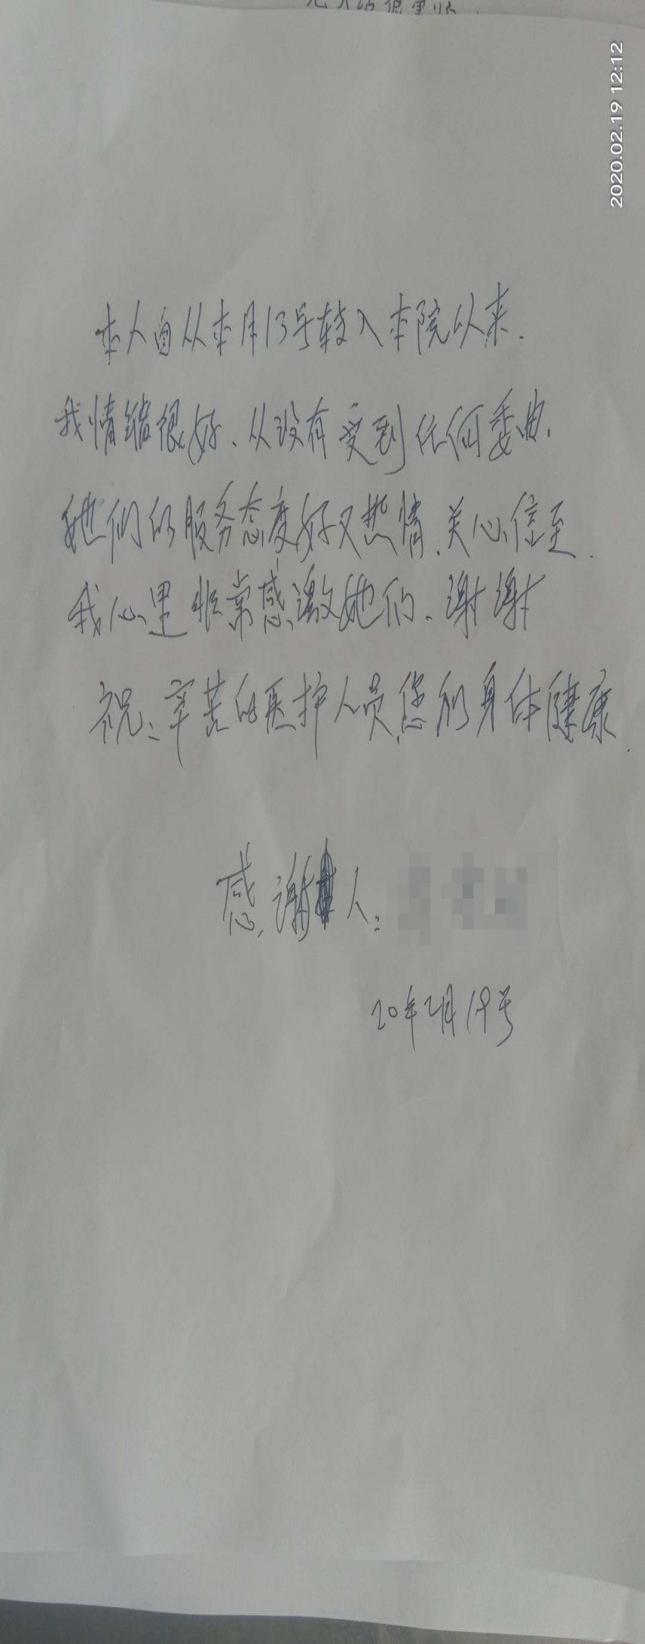 2020.02.19 12:12
本人自从本月13号转入本院以来.
我情绪很好、从没有受到任何委曲.
她们的服务态度好又热情、关心倍至.
我心里非常感激她们、谢谢
祝:辛苦的医护人员,您们身体健康.
感谢人:
20年2月19号